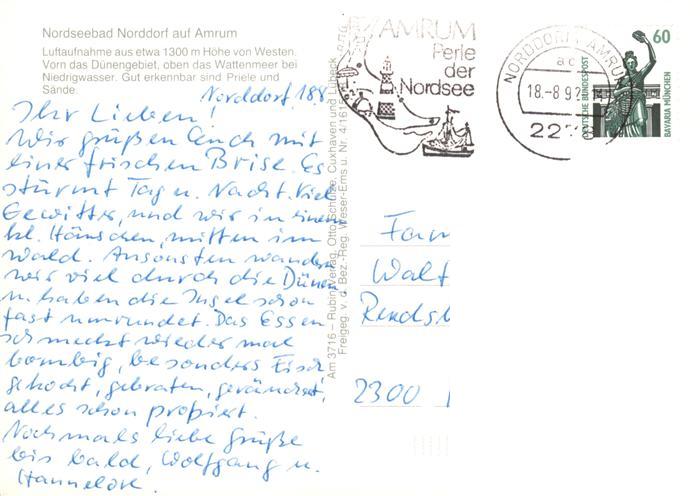 Nordseebad Norddorf auf Amrum
Luftaufnahme aus etwa 1300 m Höhe von Westen.
Vorn das Dünengebiet, oben das Wattenmeer bei
Niedrigwasser. Gut erkennbar sind Priele und
Sände.
Norddorf 18.8.
Ihr Lieben!
Wir grüßen Euch mit
einer frischen Brise. Es
stürmt Tag u. Nacht. Viel
Gewitter, und wir in einem
kl. Häuschen, mitten im
Wald. Ansonsten wandern
wir viel durch die Dünen
u. haben die Insel schon
fast umrundet. Das Essen
schmeckt wieder mal
bombig, besonders Fisch
gekocht, gebraten, geräuchert,
alles schon probiert.
Nochmals liebe Grüße
bis bald, Wolfgang u.
Hannelore.
Am 3716 – Rubin-Verlag, Otto Schulze, Cuxhaven und Lübeck
Freigeg. v. d. Bez.-Reg. Weser-Ems u. Nr. 4/1616
AMRUM
Perle
der
Nordsee
NORDDORF, AMRUM
18.-8.92
60
DEUTSCHE BUNDESPOST
BAYARIA MÜNCHEN
Fam
Walt
Rends
2300